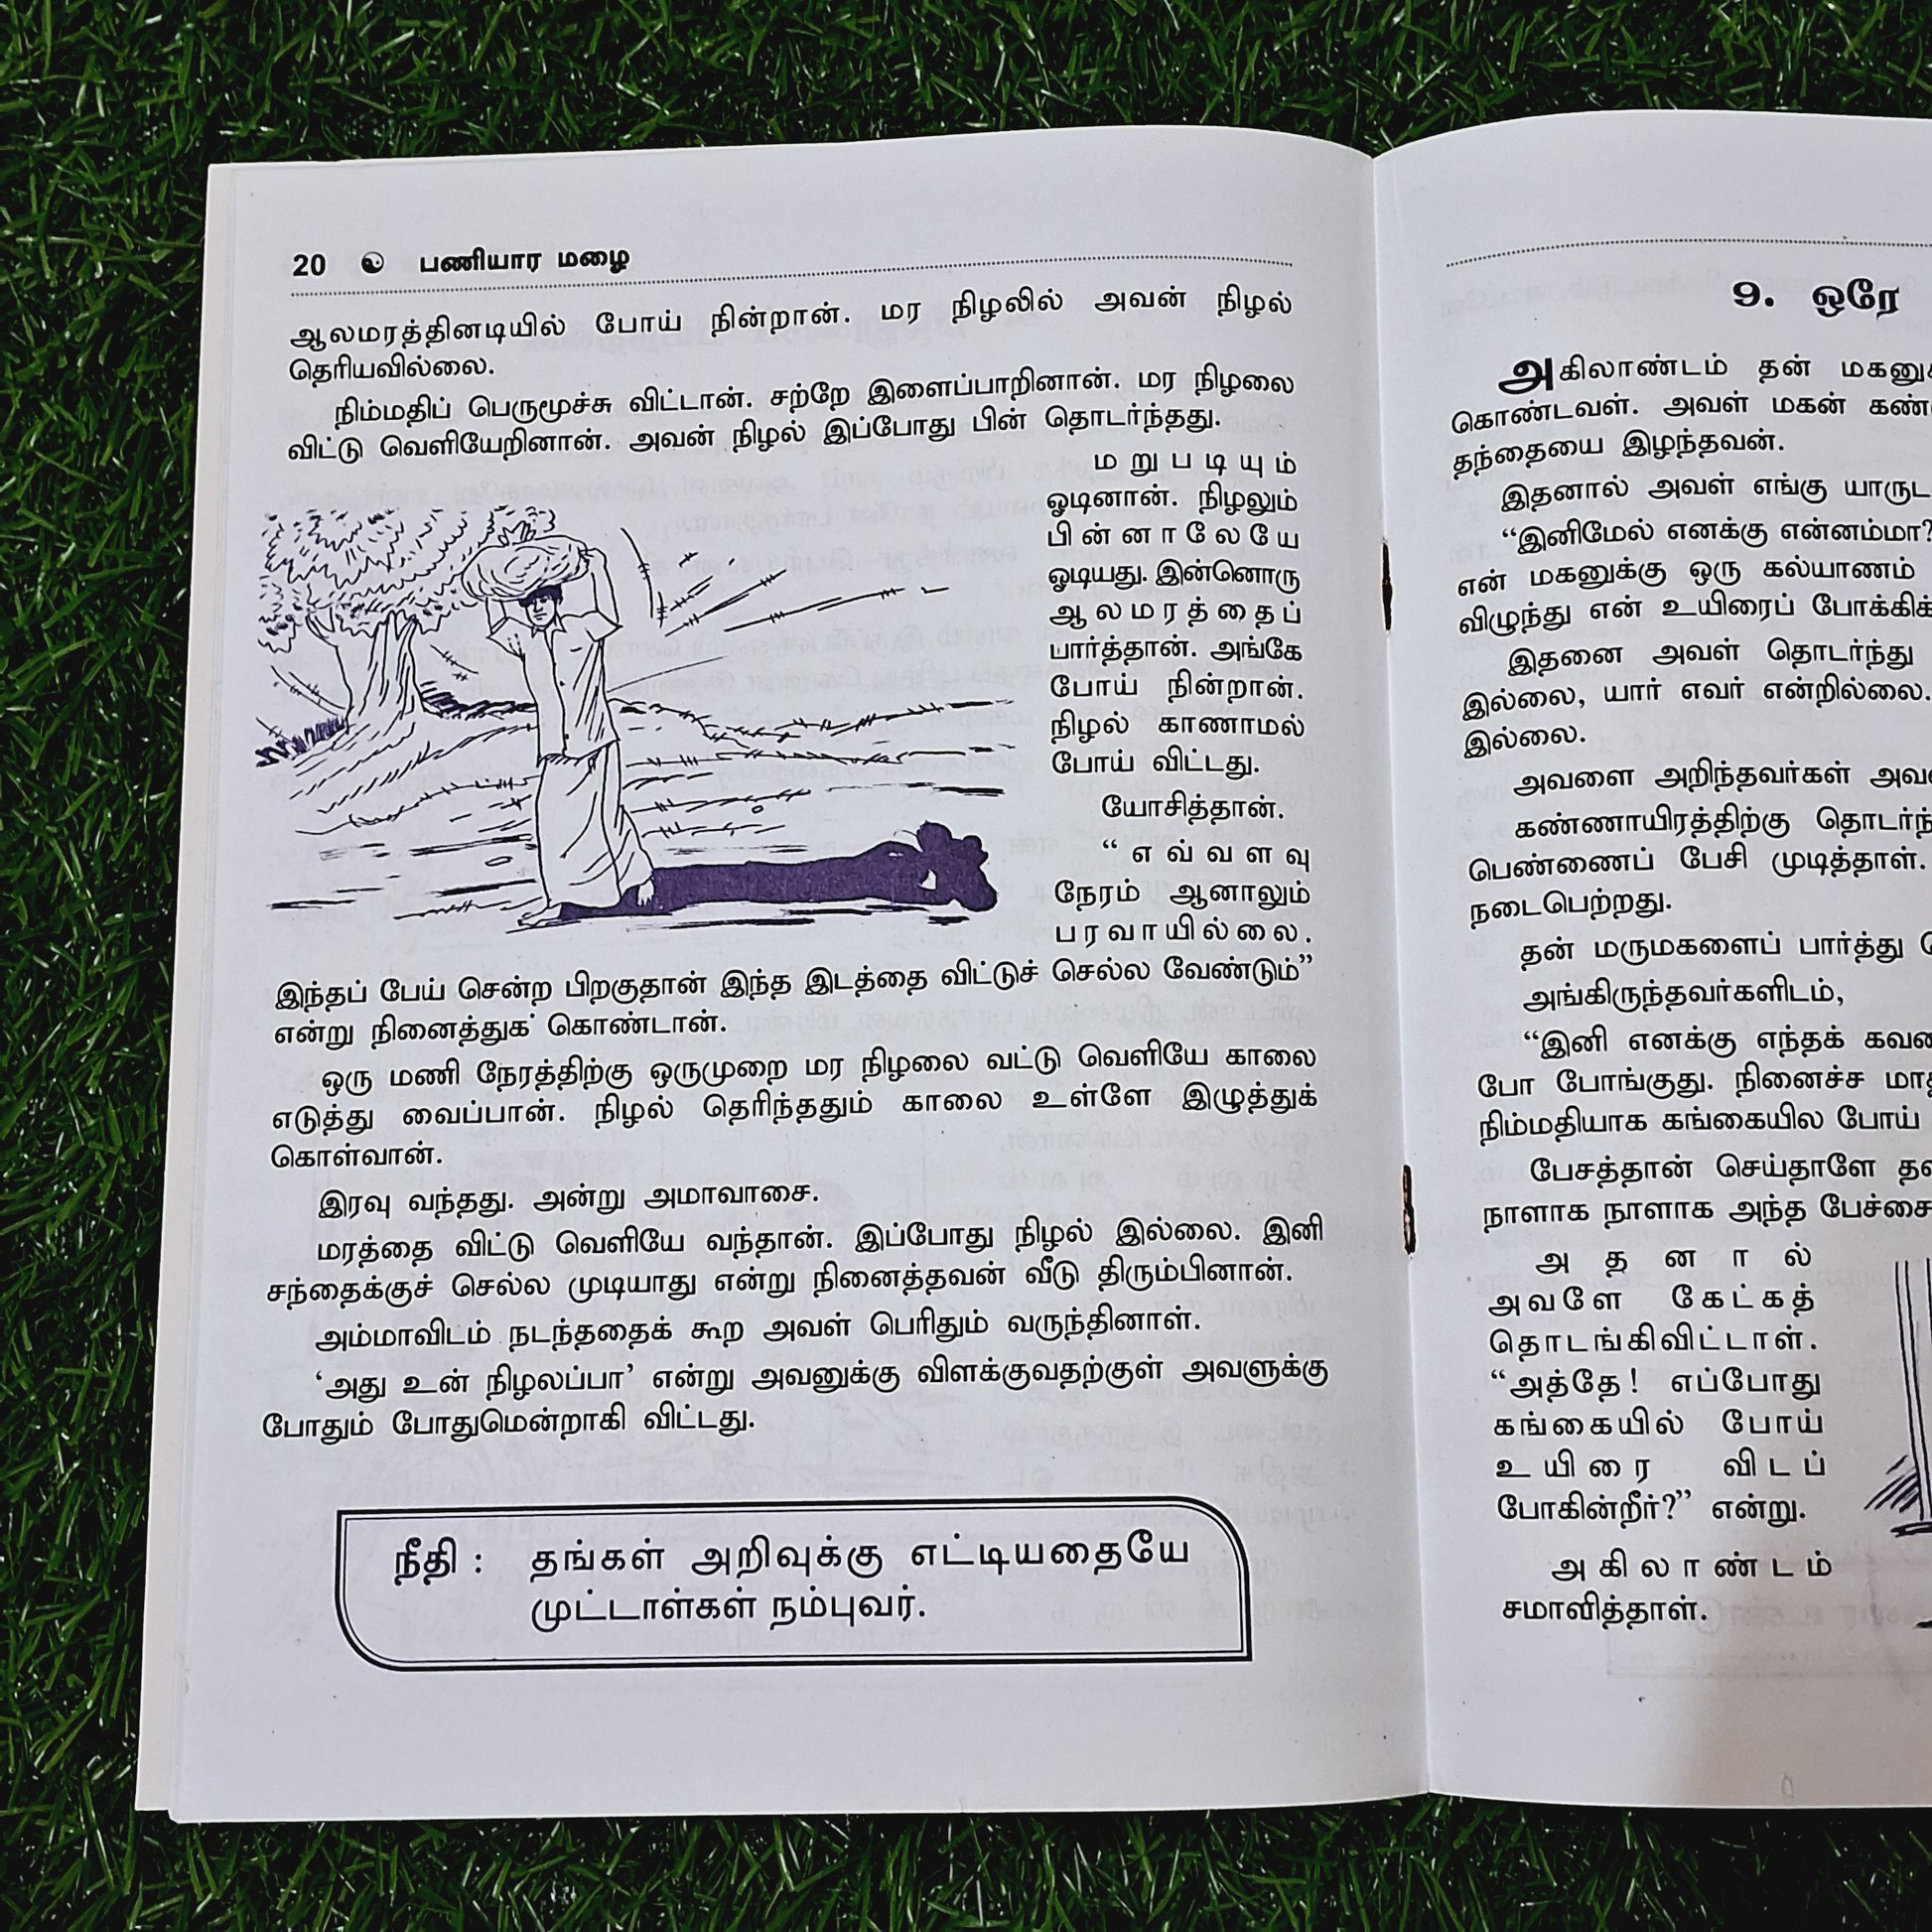 20 பணியார மழை
ஆலமரத்தினடியில் போய் நின்றான். மர நிழலில் அவன் நிழல்
தெரியவில்லை.
நிம்மதிப் பெருமூச்சு விட்டான். சற்றே இளைப்பாறினான். மர நிழலை
விட்டு வெளியேறினான். அவன் நிழல் இப்போது பின் தொடர்ந்தது.
மறுபடியும்
ஓடினான். நிழலும்
பின்னாலேயே
ஓடியது. இன்னொரு
ஆலமரத்தைப்
பார்த்தான். அங்கே
போய் நின்றான்.
நிழல் காணாமல்
போய் விட்டது.
யோசித்தான்.
“எவ்வளவு
நேரம் ஆனாலும்
பரவாயில்லை.
இந்தப் பேய் சென்ற பிறகுதான் இந்த இடத்தை விட்டுச் செல்ல வேண்டும்”
என்று நினைத்துக் கொண்டான்.
ஒரு மணி நேரத்திற்கு ஒருமுறை மர நிழலை வட்டு வெளியே காலை
எடுத்து வைப்பான். நிழல் தெரிந்ததும் காலை உள்ளே இழுத்துக்
கொள்வான்.
இரவு வந்தது. அன்று அமாவாசை.
மரத்தை விட்டு வெளியே வந்தான். இப்போது நிழல் இல்லை. இனி
சந்தைக்குச் செல்ல முடியாது என்று நினைத்தவன் வீடு திரும்பினான்.
அம்மாவிடம் நடந்ததைக் கூற அவள் பெரிதும் வருந்தினாள்.
‘அது உன் நிழலப்பா’ என்று அவனுக்கு விளக்குவதற்குள் அவளுக்கு
போதும் போதுமென்றாகி விட்டது.
நீதி : தங்கள் அறிவுக்கு எட்டியதையே
முட்டாள்கள் நம்புவர்.
9. ஒரே
அகிலாண்டம் தன்
கொண்டவள். அவள் மகன்
தந்தையை இழந்தவன்.
இதனால் அவள் எங்கு
“இனிமேல் எனக்கு என்னம்மா?
என் மகனுக்கு ஒரு கல்யாணம்
விழுந்து என் உயிரைப்
இதனை அவள் தொடர்ந்து
இல்லை, யார் எவர் என்றில்லை.
இல்லை.
அவளை அறிந்தவர்கள்
கண்ணாயிரத்திற்கு
பெண்ணைப் பேசி முடித்தாள்.
நடைபெற்றது.
தன் மருமகளைப் பார்த்து
அங்கிருந்தவர்களிடம்,
“இனி எனக்கு எந்தக்
போ போங்குது. நினைச்ச
நிம்மதியாக கங்கையில போய்
பேசத்தான் செய்தாளே
நாளாக நாளாக அந்த
அதனால்
அவளே கேட்கத்
தொடங்கிவிட்டாள்.
“அத்தே! எப்போது
கங்கையில் போய்
உயிரை விடப்
போகின்றீர்?” என்று.
அகிலாண்டம்
சமாளித்தாள்.